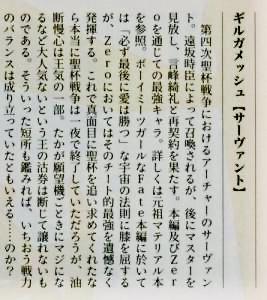 ギルガメッシュ【サーヴァント】
第四次聖杯戦争におけるアーチャーのサーヴァン
ト。遠坂時臣によって召喚されるが、後にマスターを
見放し、言峰綺礼と再契約を果たす。本編及びZer
oを通じての最強キャラ。詳しくは元祖マテリアル本
を参照。ボーイミーツガールなFate本編に於いて
は「必ず最後に愛は勝つ」な宇宙の法則に膝を屈する
が、Zeroにおいてはそのチート的最強を遺憾なく
発揮する。これで真面目に聖杯を追い求めてくれたな
ら本当に聖杯戦争は一夜で終了していただろうが、油
断慢心は王の気一部。たかが願望機ごときにマジにな
るなど大人気ないっという王の沽券は断じて譲れないも
のである。そういった短所も鑑みれば、いちおう戦力
のバランスは成り立っていたともいえる……のか?